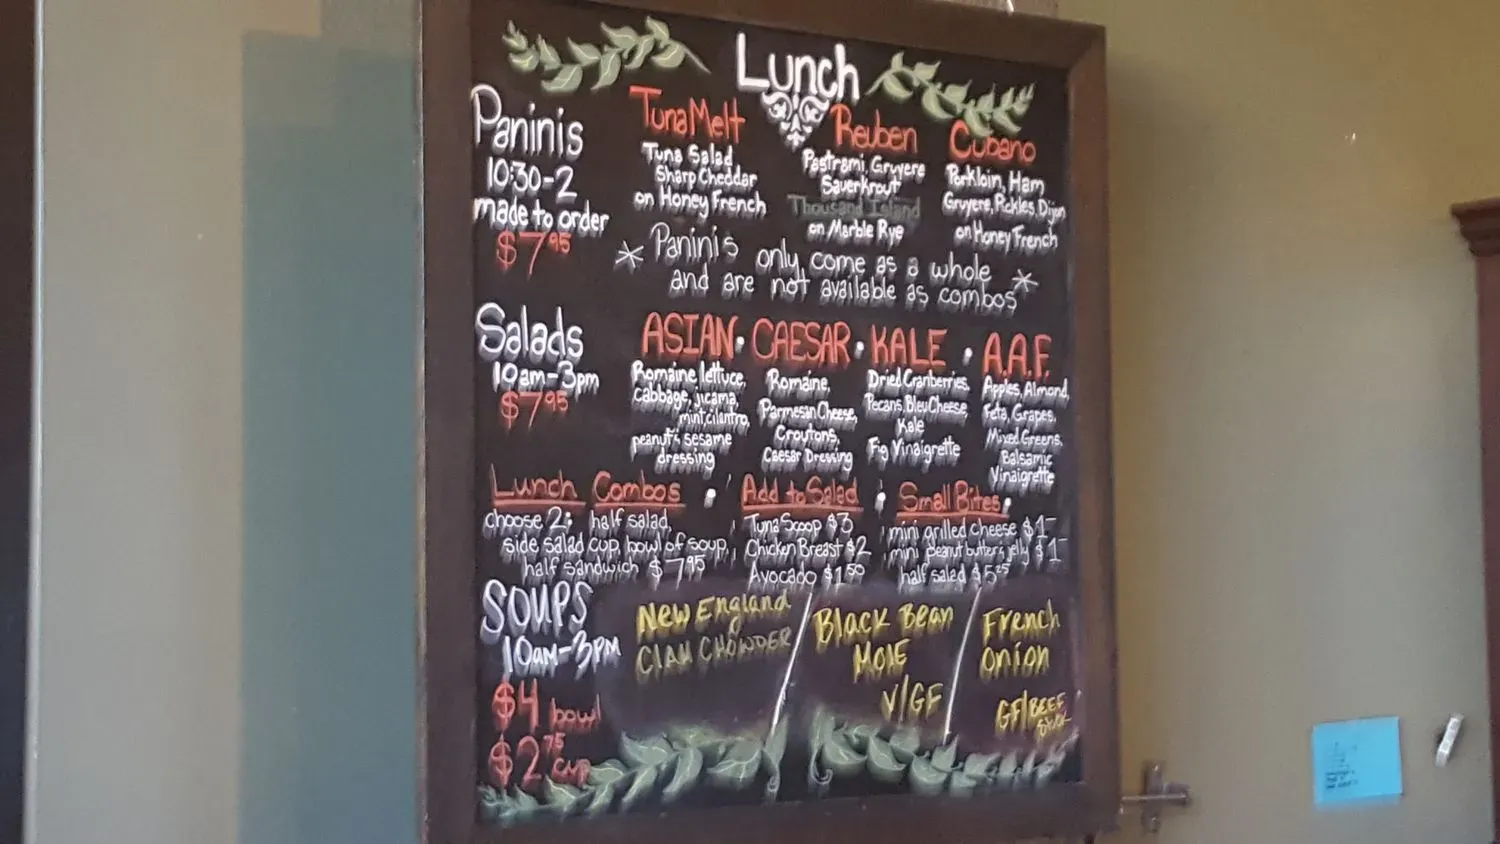 Lunch
Paninis
10:30-2
made to order
$7.95
Tuna Melt
Tuna Salad
Sharp Cheddar
on Honey French
Reuben
Pastrami, Gruyere
Sauerkrout
Thousand Island
on Marble Rye
Cubano
Porkloin, Ham
Gruyere, Pickles, Dijon
on Honey French
* Paninis only come as a whole *
and are not available as combos
Salads
10am-3pm
$7.95
ASIAN • CAESAR • KALE • A.A.F.
Romaine lettuce,
cabbage, jicama,
mint, cilantro,
peanuts, sesame
dressing
Romaine,
Parmesan Cheese,
Croutons,
Caesar Dressing
Dried Cranberries,
Pecans, Bleu Cheese,
Kale
Fig Vinaigrette
Apples, Almond,
Feta, Grapes,
Mixed Greens,
Balsamic
Vinaigrette
Lunch Combos •
choose 2: half salad,
side salad cup, bowl of soup,
half sandwich $7.95
Add to Salad •
Tuna Scoop $3
Chicken Breast $2
Avocado $1.50
Small Bites •
mini grilled cheese $1-
mini peanut butter & jelly $1-
half salad $5.25
SOUPS
10am-3PM
$4 bowl
$2.75 cup
New England
Clam Chowder
Black Bean
Mole
V/GF
French
Onion
GF/BEEF